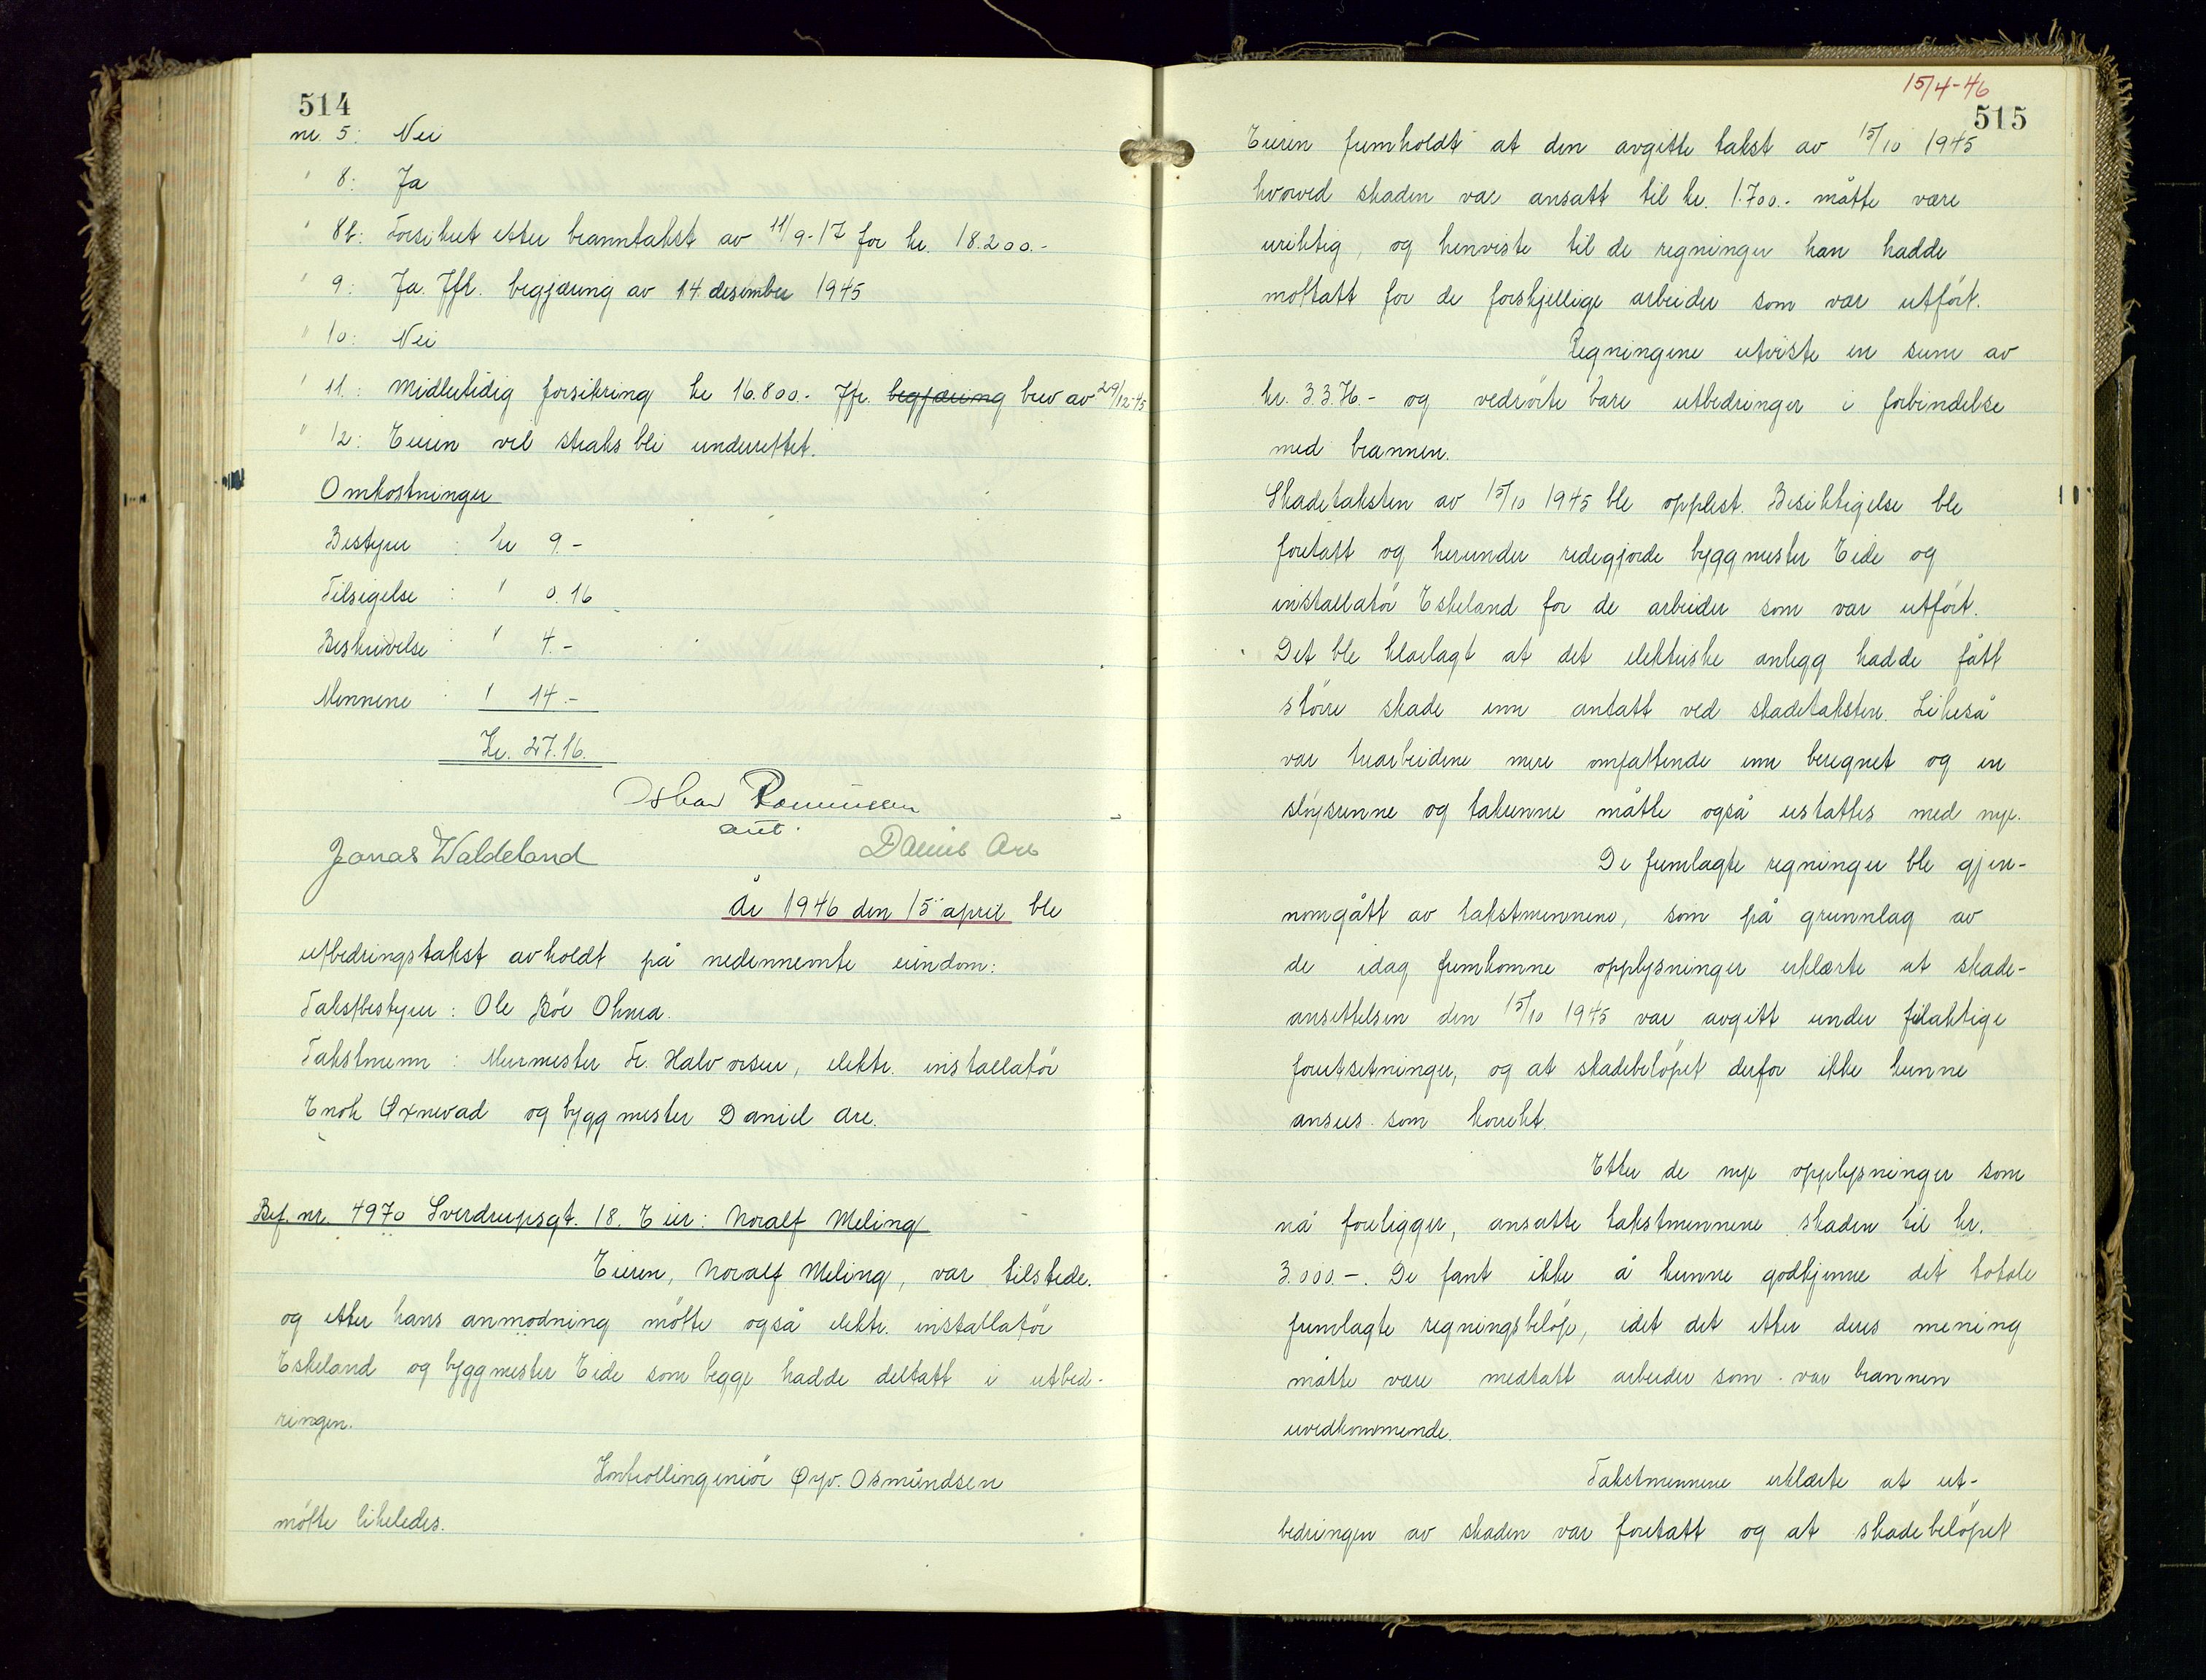 514
nr. 5: Nei
" 8: Ja
" 8b: Forsikret etter branntakst av 11/9-17 for kr. 18.200.-
" 9: Ja. Jfr. begjæring av 14 desember 1945
" 10: Nei
" 11: Midlertidig forsikring kr 16.800.- Jfr. begjæring brev av 29/12-45
" 12: Eieren vil straks bli underrettet.
Omkostninger
Bestyrer : kr 9.-
Tilsigelse : " 0.16
Beskrivelse : " 4.-
Mennene : " 14.-
Kr. 27.16.
Oskar Rasmussen
aut.
Jonas Waldeland
År 1946 den 15 april ble
utbedringstakst avholdt på nedennevnte eiendom:
Takstbestyrer: Ole Bøe Ohma.
Takstmenn: Murmester Fr. Halvorsen, elektr. installatör
Enok Oxnevad og byggmester Daniel Are.
Bef. nr. 4970 Sverdrupsgt. 18. Eier: Noralf Meling
Eieren, Noralf Meling, var tilstede.
og etter hans anmodning møtte også elektr. installatör
Eskeland og byggmester Eide som begge hadde deltatt i utbed-
ringen.
Kontrollingeniör Øyv. Osmundsen
møtte likeledes.
15/4-46
515
Eieren fremholdt at den avgitte takst av 15/10 1945
hvorved skaden var ansatt til kr. 1.700.- måtte være
uriktig, og henviste til de regninger han hadde
mottatt for de forskjellige arbeider som var utfört.
Regningene utviste en sum av
kr. 3.376.- og vedrörte bare utbedringer i forbindelse
med brannen.
Skadetaksten av 15/10 1945 ble opplest. Besiktigelse ble
foretatt og herunder redegjorde byggmester Eide og
installatör Eskeland for de arbeider som var utfört.
Det ble klarlagt at det elektriske anlegg hadde fått
större skade enn antatt ved skadetaksten. Likeså
var trearbeidene mere omfattende enn beregnet og en
sløysrenne og takrenne måtte også erstattes med nye.
De fremlagte regninger ble gjen-
nomgått av takstmennene, som på grunnlag av
de idag fremkomne opplysninger erklærte at skade-
ansettelsen den 15/10 1945 var avgitt under feilaktige
forutsetninger, og at skadebelöpet derfor ikke kunne
ansees som korrekt.
Etter de nye opplysninger som
nå foreligger, ansatte takstmennene skaden til kr.
3.000.-. De fant ikke å kunne godkjenne det totale
fremlagte regningsbelöp, idet det etter deres mening
måtte være medtatt arbeider som var brannen
uvedkommende.
Takstmennene erklærte at ut-
bedringen av skaden var foretatt og at skadebelöpet